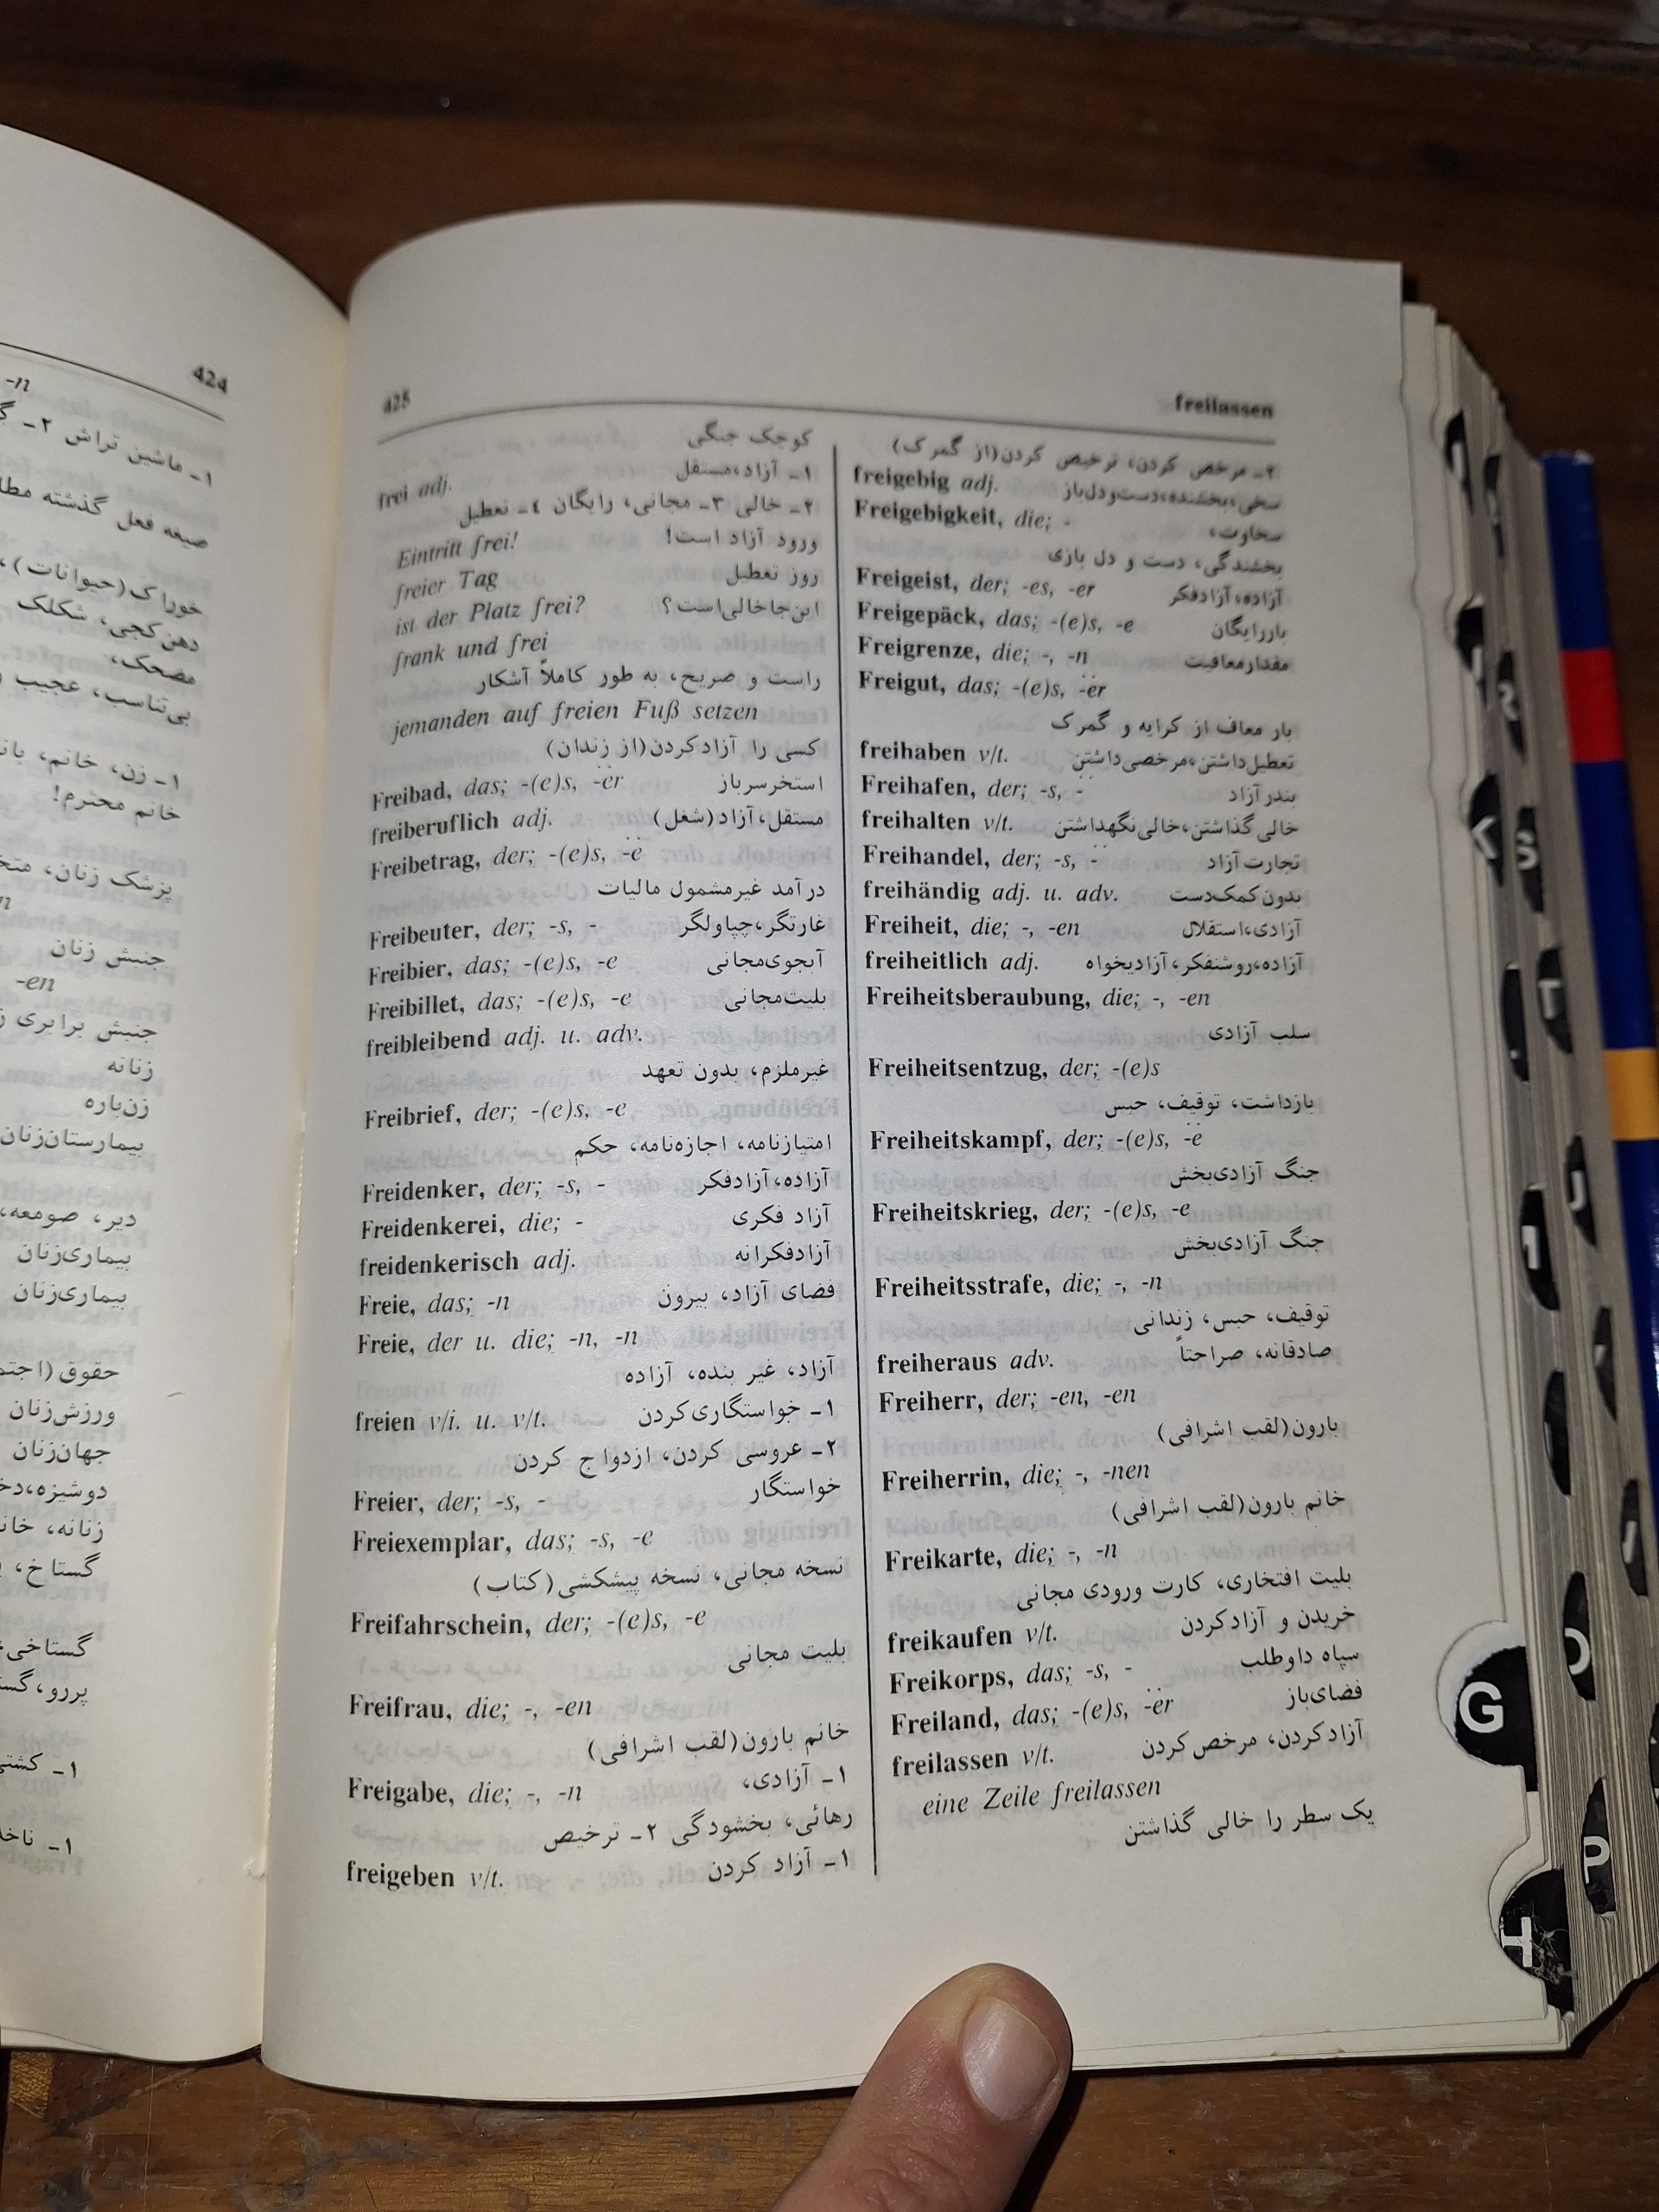 424
-n
۱ـ ماشین تراش ۲ـ
صیغه فعل گذشته
خوراک(حیوانات)،
دهن‌کجی، شکلک
مضحک،
بی‌تناسب، عجیب
۱ـ زن، خانم،
خانم محترم!
پزشک زنان،
جنبش زنان
-en
جنبش برابری
زنانه
زن‌باره
بیمارستان‌زنان
دیر، صومعه،
بیماری‌زنان
بیماری‌زنان
حقوق
ورزش‌زنان
جهان‌زنان
دوشیزه،
زنانه،
گستاخ،
گستاخی،
پررو،
۱ـ
۱ـ
425
کوچک جنگی
frei adj. ۱ـ آزاد،مستقل
۲ـ خالی ۳ـ مجانی، رایگان ٤ـ تعطیل
Eintritt frei! ورود آزاد است!
freier Tag روز تعطیل
ist der Platz frei? این‌جاخالی‌است؟
frank und frei
راست و صریح، به طور کاملاً آشکار
jemanden auf freien Fuß setzen
کسی را آزادکردن(از زندان)
Freibad, das; -(e)s, -̈er استخرسرباز
freiberuflich adj. مستقل،آزاد(شغل)
Freibetrag, der; -(e)s, -̈e
درآمد غیرمشمول مالیات
Freibeuter, der; -s, - غارتگر،چپاولگر
Freibier, das; -(e)s, -e آبجوی‌مجانی
Freibillet, das; -(e)s, -e بلیت‌مجانی
freibleibend adj. u. adv.
غیرملزم، بدون تعهد
Freibrief, der; -(e)s, -e
امتیازنامه، اجازه‌نامه، حکم
Freidenker, der; -s, - آزاده،آزادفکر
Freidenkerei, die; - آزاد فکری
freidenkerisch adj. آزادفکرانه
Freie, das; -n فضای آزاد، بیرون
Freie, der u. die; -n, -n
آزاد، غیر بنده، آزاده
freien v/i. u. v/t. ۱ـ خواستگاری‌کردن
۲ـ عروسی کردن، ازدواج کردن
Freier, der; -s, - خواستگار
Freiexemplar, das; -s, -e
نسخه مجانی، نسخه پیشکشی(کتاب)
Freifahrschein, der; -(e)s, -e
بلیت مجانی
Freifrau, die; -, -en
خانم بارون(لقب اشرافی)
Freigabe, die; -, -n ۱ـ آزادی،
رهائی، بخشودگی ۲ـ ترخیص
freigeben v/t. ۱ـ آزاد کردن
freilassen
۲ـ مرخص کردن، ترخیص کردن(از گمرک)
freigebig adj. سخی،بخشنده،دست‌ودل‌باز
Freigebigkeit, die; - سخاوت،
بخشندگی، دست و دل بازی
Freigeist, der; -es, -er آزاده،آزادفکر
Freigepäck, das; -(e)s, -e باررایگان
Freigrenze, die; -, -n مقدارمعافیت
Freigut, das; -(e)s, -̈er
بار معاف از کرایه و گمرک
freihaben v/t. تعطیل‌داشتن،مرخصی‌داشتن
Freihafen, der; -s, -̈ بندرآزاد
freihalten v/t. خالی‌گذاشتن،خالی‌نگهداشتن
Freihandel, der; -s, -̈ تجارت‌آزاد
freihändig adj. u. adv. بدون‌کمک‌دست
Freiheit, die; -, -en آزادی،استقلال
freiheitlich adj. آزاده،روشنفکر،آزادیخواه
Freiheitsberaubung, die; -, -en
سلب آزادی
Freiheitsentzug, der; -(e)s
بازداشت، توقیف، حبس
Freiheitskampf, der; -(e)s, -̈e
جنگ آزادی‌بخش
Freiheitskrieg, der; -(e)s, -e
جنگ آزادی‌بخش
Freiheitsstrafe, die; -, -n
توقیف، حبس، زندانی
freiheraus adv. صادقانه، صراحتاً
Freiherr, der; -en, -en
بارون(لقب اشرافی)
Freiherrin, die; -, -nen
خانم بارون(لقب اشرافی)
Freikarte, die; -, -n
بلیت افتخاری، کارت ورودی مجانی
freikaufen v/t. خریدن و آزادکردن
Freikorps, das; -s, - سپاه داوطلب
Freiland, das; -(e)s, -̈er فضای‌باز
freilassen v/t. آزادکردن، مرخص‌کردن
eine Zeile freilassen
یک سطر را خالی گذاشتن
G
H
P